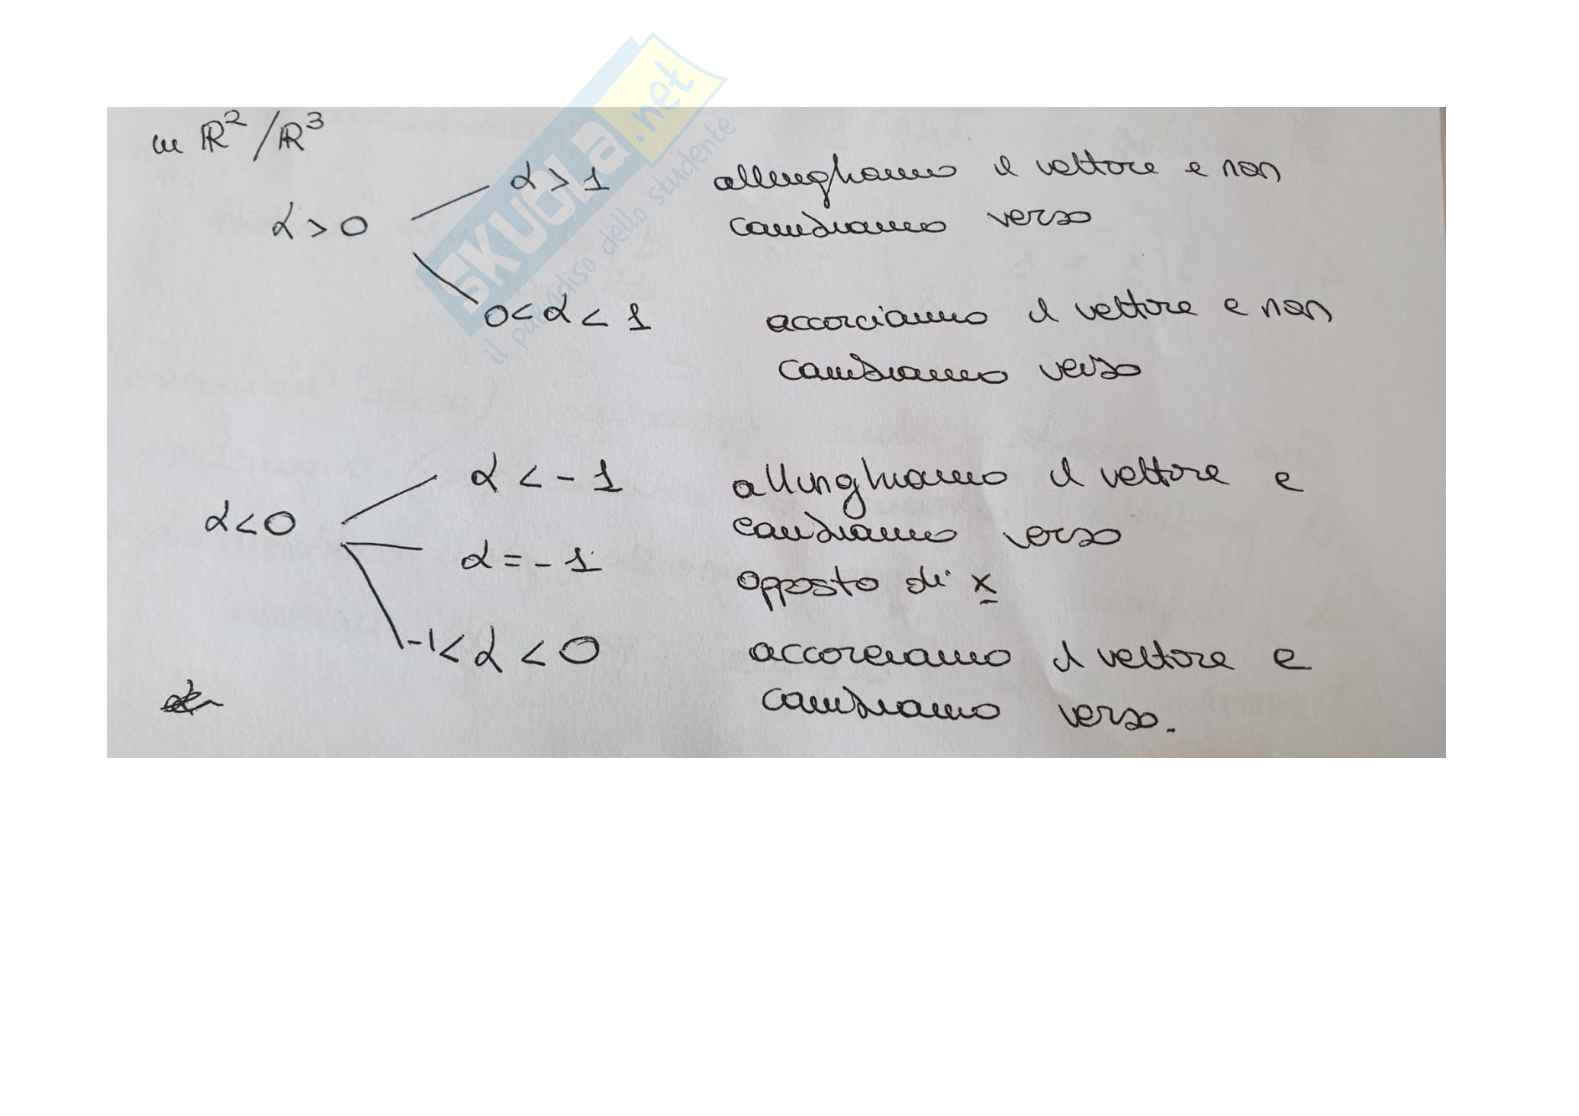 in ℝ²/ℝ³
α > 0
α > 1 allunghiamo il vettore e non
cambiamo verso
0 < α < 1 accorciamo il vettore e non
cambiamo verso
α < 0
α < - 1 allunghiamo il vettore e
cambiamo verso
α = - 1 opposto di x
-1 < α < 0 accorciamo il vettore e
cambiamo verso.
SKUOLA.net
il paradiso dello studente